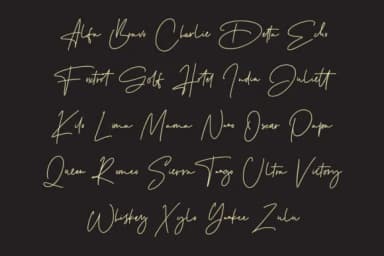 Alfa Bravo Charlie Delta Echo
Foxtrot Golf Hotel India Juliett
Kilo Lima Mama Nano Oscar Papa
Queen Romeo Sierra Tango Ultra Victory
Whiskey Xylo Yankee Zulu